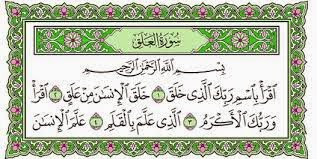 سُورَةُ العَلَقِ
بِسْمِ اللَّهِ الرَّحْمَٰنِ الرَّحِيمِ
ٱقْرَأْ بِٱسْمِ رَبِّكَ ٱلَّذِى خَلَقَ ١ خَلَقَ ٱلْإِنسَٰنَ مِنْ عَلَقٍ ٢ ٱقْرَأْ
وَرَبُّكَ ٱلْأَكْرَمُ ٣ ٱلَّذِى عَلَّمَ بِٱلْقَلَمِ ٤ عَلَّمَ ٱلْإِنسَٰنَ